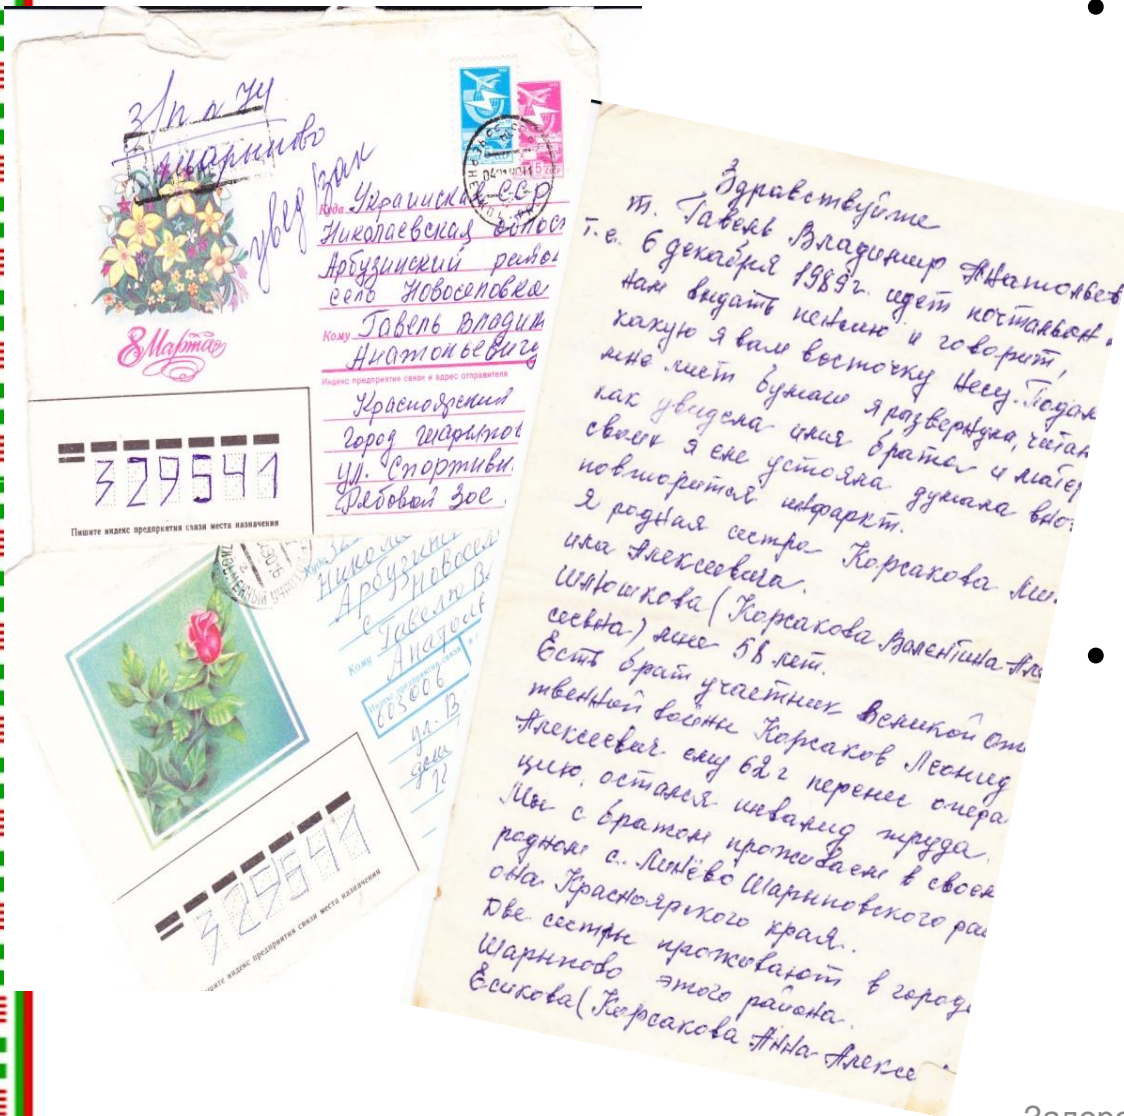 з/п а 74
Шарыпово
увед зак
8 Марта
Куда Украинская ССР
Николаевская област
Арбузинский район
село Новоселовка
Кому Гавель Владим
Анатольевичу
Индекс предприятия связи и адрес отправителя
Красноярский
город Шарыпов
ул. Спортивн
Рябовол Зое.
329541
Пишите индекс предприятия связи места назначения
Куда
Никола
Арбузин
с Новосел
Кому Гавелю В.
Анатоль
Индекс предприятия связи
603006
ул. В
дом
329541
Пишите индекс предприятия связи места назначения
Здравствуйте
т. Гавель Владимир Анатольев
т.е. 6 декабря 1989г. идет почтальон
нам выдать пенсию и говорит,
какую я вам восточку несу. Подал
мне лист бумаги я развернула, читаю
как увидела имя брата и матер
своих я еле устояла думала вно
повторится инфаркт.
Я родная сестра Корсакова Ми
ила Алексеевича.
Шлюшкова (Корсакова Валентина Але
сеевна) мне 58 лет.
Есть брат участник Великой Оте
твенной войны Корсаков Леонид
Алексеевич ему 62 г перенес опера
цию, остался инвалид труда.
Мы с братом проживаем в своем
родном с. Линёво Шарыповского рай
она Красноярского края.
Две сестры проживают в городе
Шарыпово этого района.
Есикова (Корсакова Анна Алексе